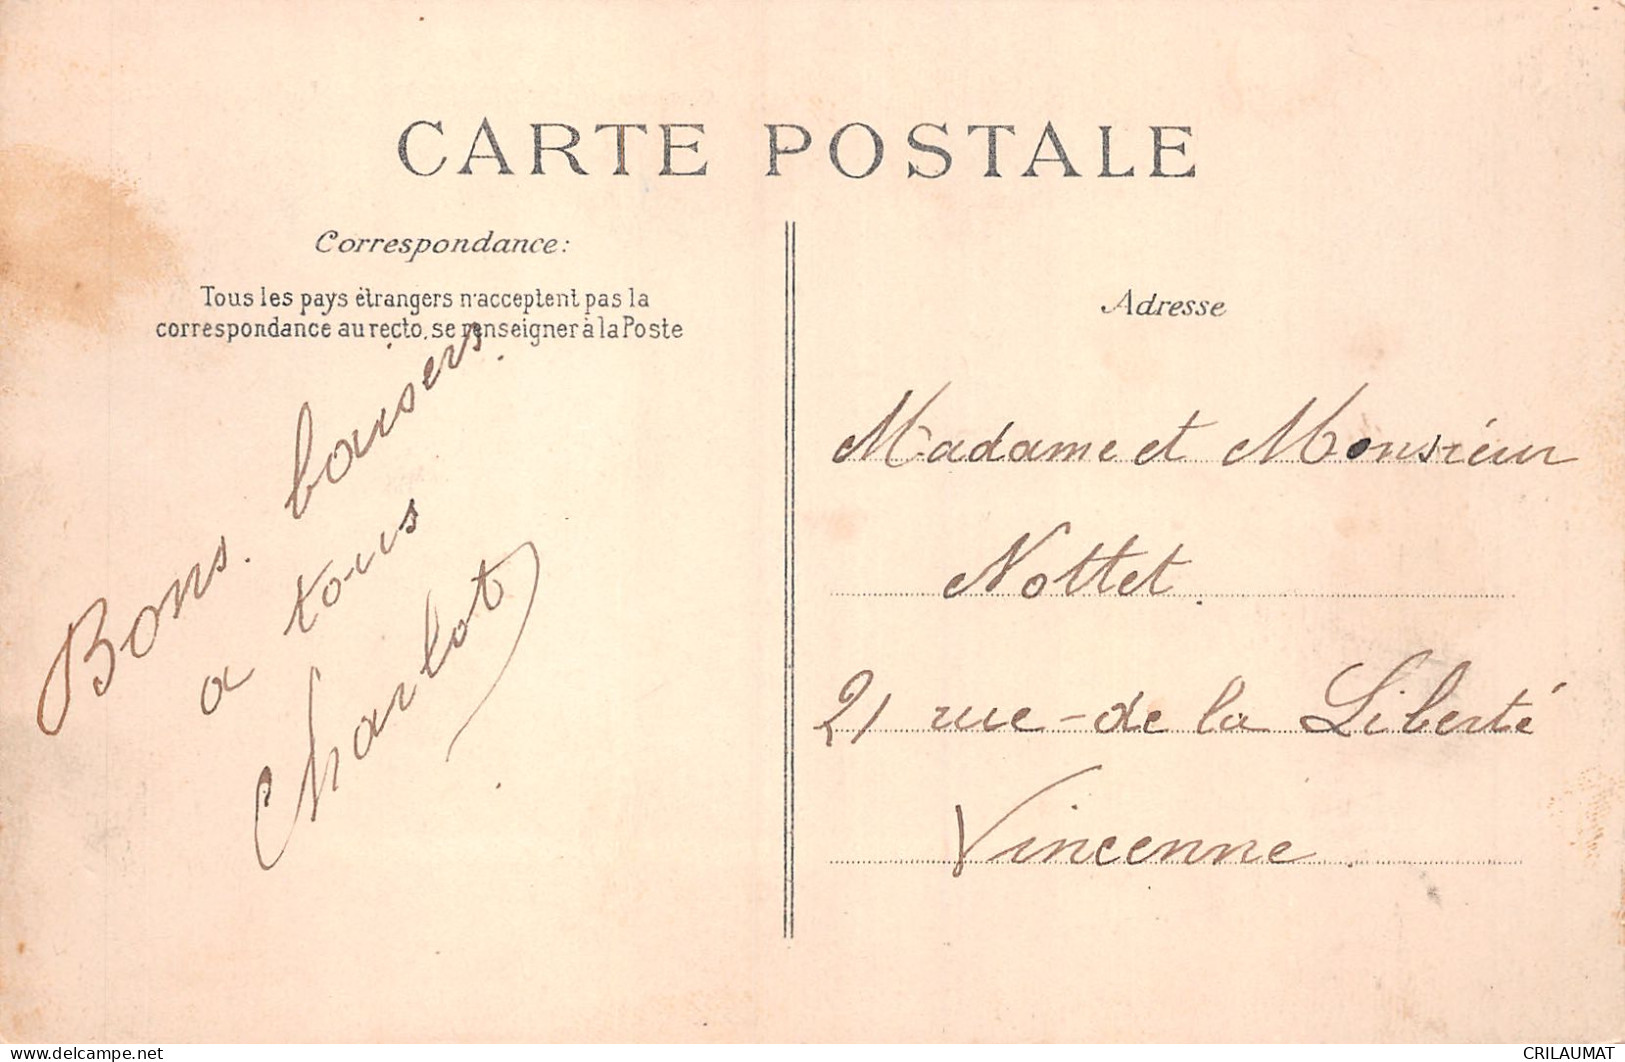 CARTE POSTALE
Correspondance:
Tous les pays étrangers n'acceptent pas la
correspondance au recto, se renseigner à la Poste
Bons baisers
a tous
Charlot
Adresse
Madame et Monsieur
Nottet
21 rue de la Liberté
Vincenne
delcampe.net
CRILAUMAT